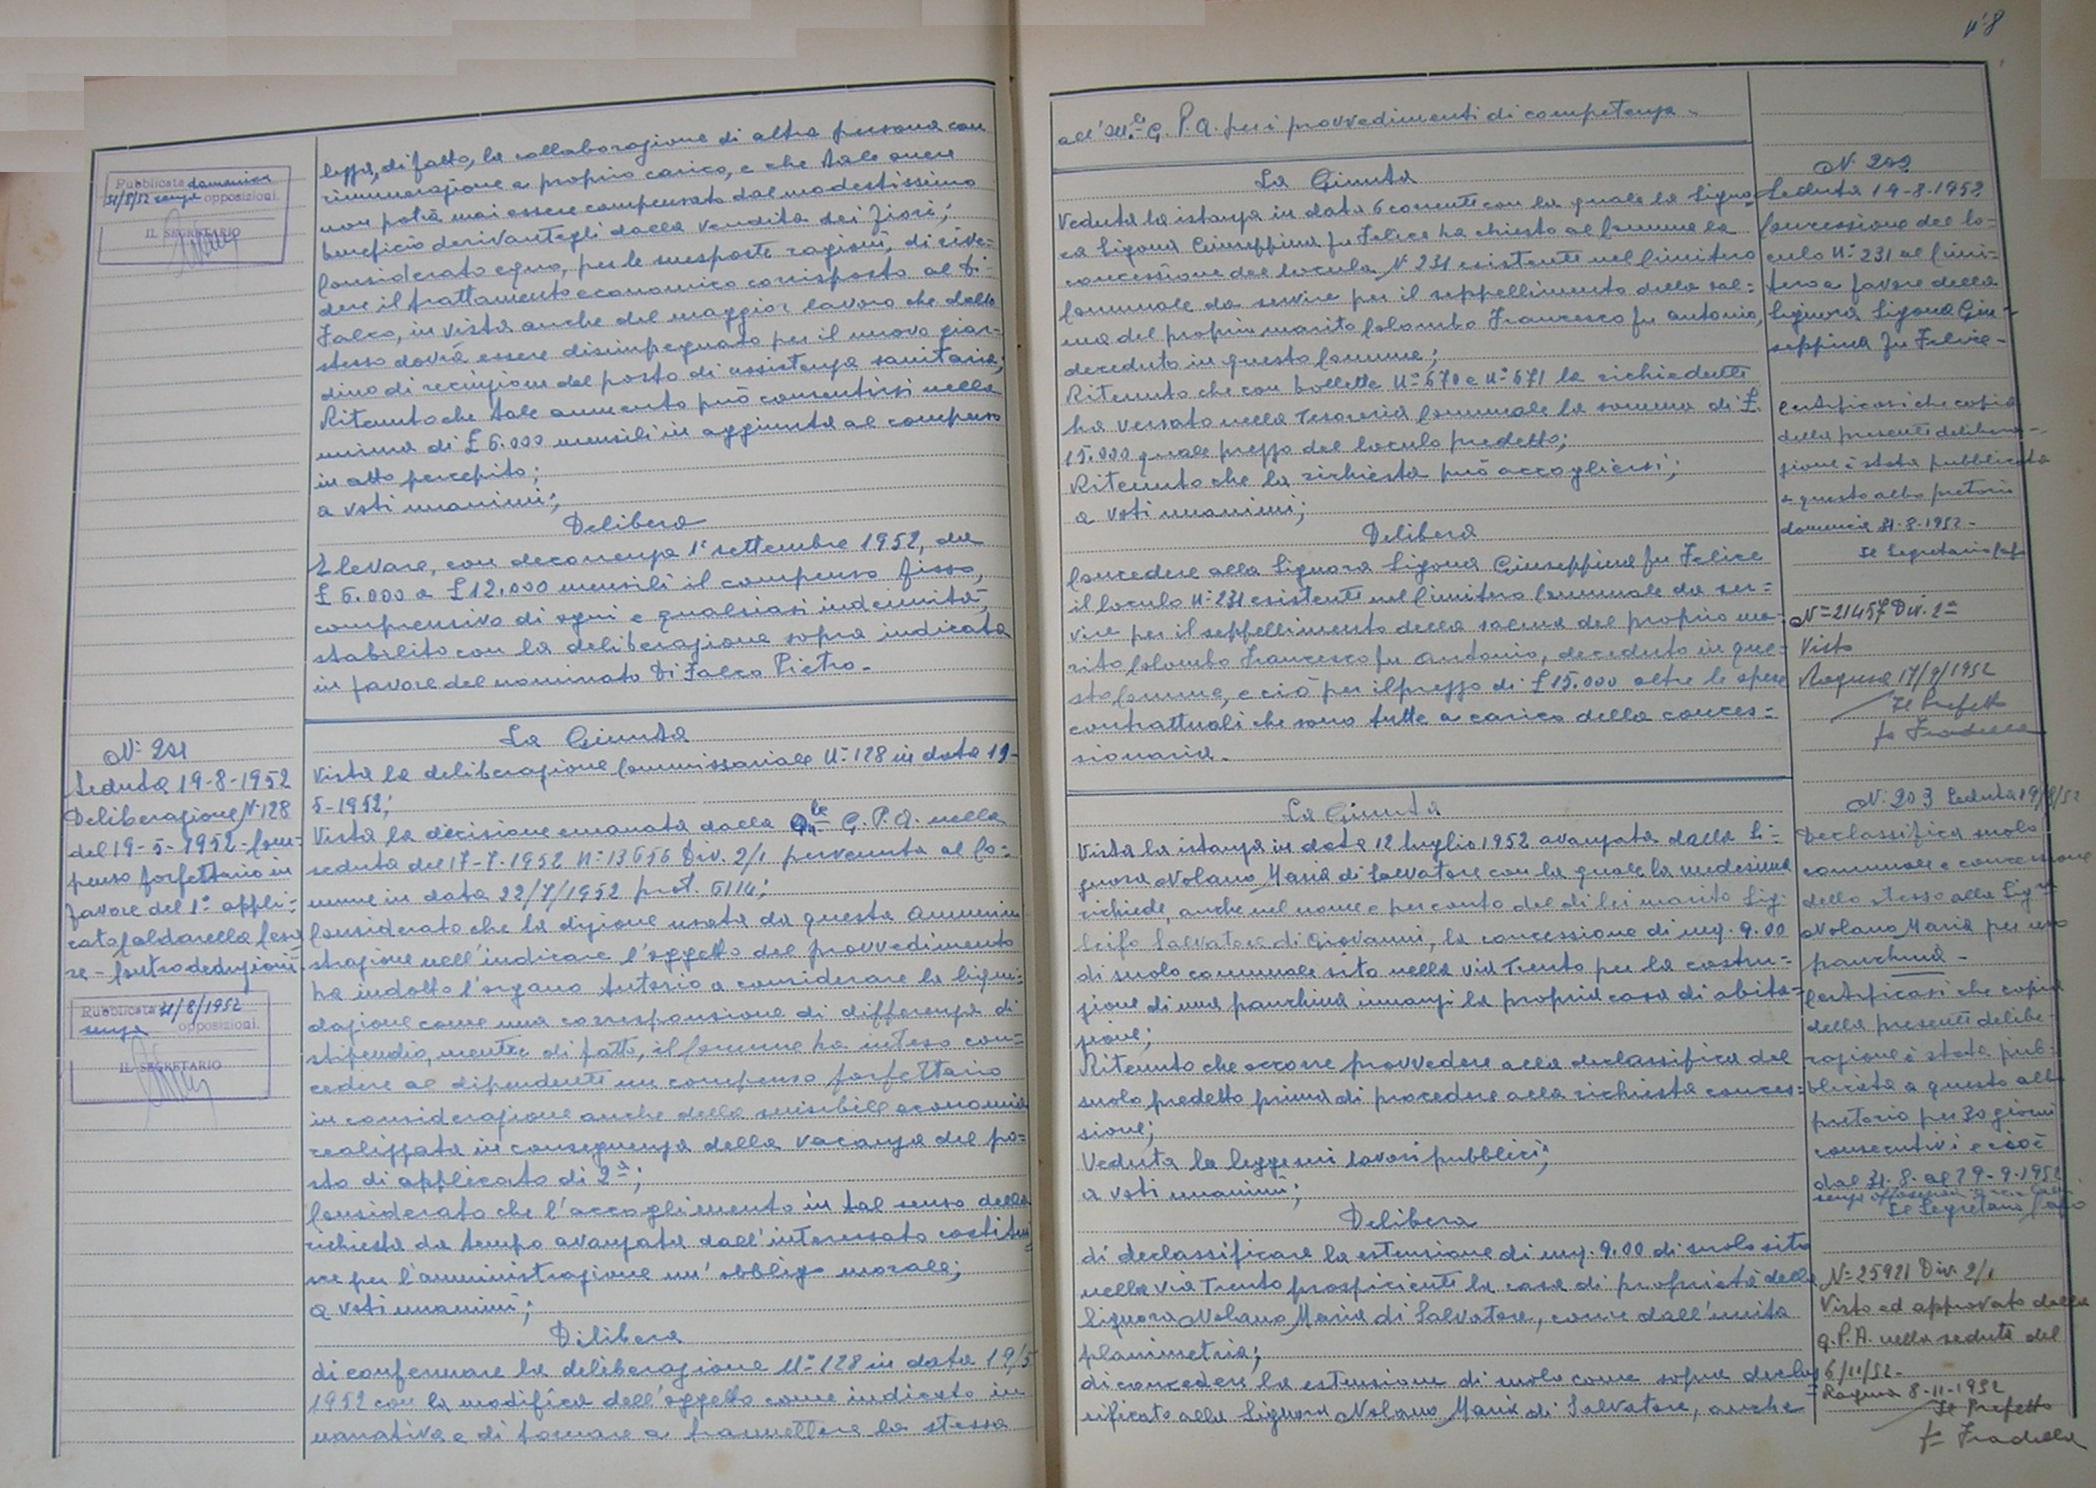 n° 8
Pubblicata domenica
31/8/52 senza opposizioni.
IL SEGRETARIO
legga, di fatto, la collaborazione di altra persona con
rimunerazione a proprio carico, e che tale onere
non potrà mai essere compensato dal modestissimo
beneficio derivantegli dalla vendita dei fiori;
Considerato equo, per le suesposte ragioni, di rive-
dere il trattamento economico corrisposto al Di
Falco, in vista anche del maggior lavoro che dallo
stesso dovrà essere disimpegnato per il nuovo giar-
dino di recinzione del posto di assistenza sanitaria;
Ritenuto che tale aumento può consentirsi nella
misura di £ 6.000 mensili in aggiunta al compenso
in atto percepito;
a voti unanimi;
Delibera
Elevare, con decorrenza 1° settembre 1952, da
£ 6.000 a £ 12.000 mensili il compenso fisso,
comprensivo di ogni e qualsiasi indennità,
stabilito con la deliberazione sopra indicata
in favore del nominato Di Falco Pietro.
N° 201
Seduta 19-8-1952
Deliberazione N° 128
del 19-5-1952 - Com-
penso forfettario in
favore del 1° appli-
cato Caldarella Cesa
re - Controdeduzioni.
Pubblicata 31/8/1952
senza opposizioni.
IL SEGRETARIO
La Giunta
Vista la deliberazione Commissariale N° 128 in data 19-
5-1952;
Vista la decisione emanata dalla G.P.A. nella
seduta del 17-7-1952 N° 13656 Div. 2/1 pervenuta al Co-
mune in data 22/7/1952 prot. 6114;
Considerato che la dizione usata da questa Ammini
strazione nell'indicare l'oggetto del provvedimento
ha indotto l'organo tutorio a considerare la liqui-
dazione come una corresponsione di differenza di
stipendio, mentre di fatto, il Comune ha inteso con-
cedere al dipendente un compenso forfettario
in considerazione anche della sensibile economia
realizzata in conseguenza della vacanza del po-
sto di applicato di 2ª;
Considerato che l'accoglimento in tal senso della
richiesta da tempo avanzata dall'interessato costitui-
sce per l'amministrazione un' obbligo morale;
a voti unanimi;
Delibera
di confermare la deliberazione N° 128 in data 19/5
1952 con la modifica dell'oggetto come indicato in
narrativa e di tornare a trasmettere la stessa
all' On.le G.P.A. per i provvedimenti di competenza.
La Giunta
Veduta la istanza in data 6 corrente con la quale la Signo-
ra Ligona Giuseppina fu Felice ha chiesto al Comune la
concessione del loculo N° 231 esistente nel Cimitero
Comunale da servire per il seppellimento della sal-
ma del proprio marito Colombo Francesco fu Antonio,
deceduto in questo Comune;
Ritenuto che con bollette N° 670 e N° 671 la richiedente
ha versato nella Tesoreria Comunale la somma di £.
15.000 quale prezzo del loculo predetto;
Ritenuto che la richiesta può accogliersi;
a voti unanimi;
Delibera
Concedere alla Signora Ligona Giuseppina fu Felice
il loculo N° 231 esistente nel Cimitero Comunale da ser-
vire per il seppellimento della salma del proprio ma-
rito Colombo Francesco fu Antonio, deceduto in que-
sto Comune, e ciò per il prezzo di £ 15.000 oltre le spese
contrattuali che sono tutte a carico della conces-
sionaria.
N° 202
Seduta 19-8-1952
Concessione del lo-
culo N° 231 al Cimi-
tero a favore della
Signora Ligona Giu-
seppina fu Felice -
Certificasi che copia
della presente delibera-
zione è stata pubblicata
a questo albo pretorio
domenica 31-8-1952 -
Il Segretario Capo
N° 21457 Div. 2ª
Visto
Ragusa 17/9/1952
Il Prefetto
La Giunta
Vista la istanza in data 12 luglio 1952 avanzata dalla Si-
gnora Nolano Maria di Salvatore con la quale la medesima
richiede, anche nel nome e per conto del di lei marito Sig.
Scifo Salvatore di Giovanni, la concessione di mq. 9.00
di suolo comunale sito nella via Trento per la costru-
zione di una panchina innanzi la propria casa di abita-
zione;
Ritenuto che occorre provvedere alla declassifica del
suolo predetto prima di procedere alla richiesta conces-
sione;
Veduta la legge sui lavori pubblici;
a voti unanimi;
Delibera
di declassificare la estensione di mq. 9.00 di suolo sito
nella via Trento prospiciente la casa di proprietà della
Signora Nolano Maria di Salvatore, come dall'unita
planimetria;
di concedere la estensione di suolo come sopra declas
sificato alla Signora Nolano Maria di Salvatore, anche
N° 203 Seduta 19/8/52
Declassifica suolo
comunale e concessione
dello stesso alla Sig.ra
Nolano Maria per uso
panchina -
Certificasi che copia
della presente delibe-
razione è stata pub-
blicata a questo albo
pretorio per 30 giorni
consecutivi e cioè
dal 31-8- al 29-9-1952
senza opposizioni
Il Segretario Capo
N° 25921 Div. 2/1
Visto ed approvato dalla
G.P.A. nella seduta del
6/11/52 -
Ragusa 8-11-1952
Il Prefetto